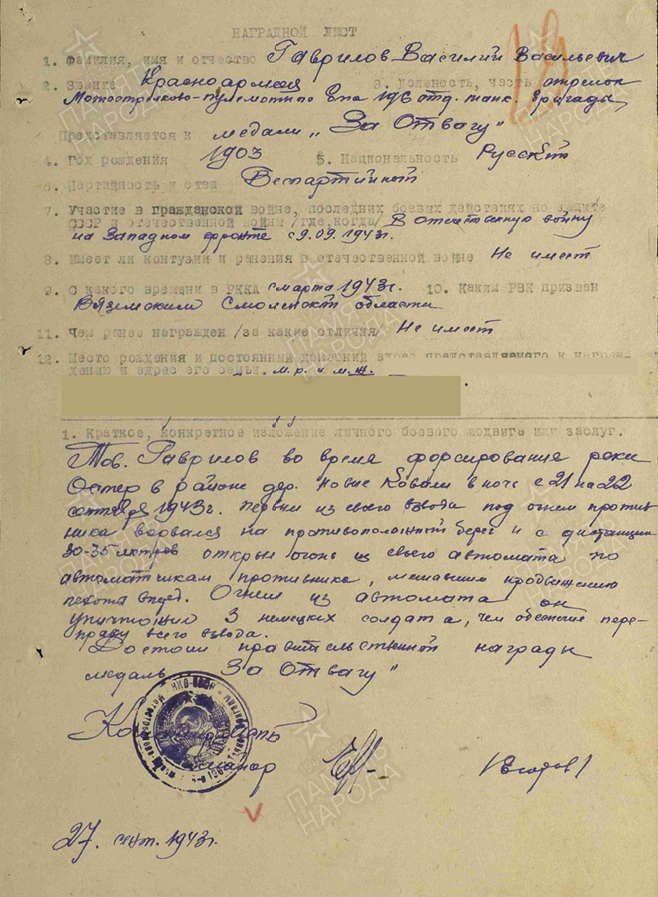 НАГРАДНОЙ ЛИСТ
1. Фамилия, имя и отчество Гаврилов Василий Васильевич
2. Звание Красноармеец 3. Должность, часть стрелок
Мотострелково-пулеметного б-на 196 отд. танк. бригады
Представляется к медали „За Отвагу"
4. Год рождения 1903 5. Национальность Русский
6. Партийность и стаж Беспартийный
7. Участие в гражданской войне, последних боевых действиях по защите
СССР и отечественной войны /где, когда/ В отечественную войну
на Западном фронте с 9.09.1943г.
8. Имеет ли контузии и ранения в отечественной войне Не имеет
9. С какого времени в РККА с марта 1943г. 10. Каким РВК призван
Вяземским Смоленской области
11. Чем ранее награжден /за какие отличия/ Не имеет
12. Место рождения и постоянный домашний адрес представляемого к награж-
дению и адрес его семьи. м.р. и м.ж.
1. Краткое, конкретное изложение личного боевого подвига или заслуг.
Тов. Гаврилов во время форсирование реки
Остер в районе дер. Новые Ковали в ночь с 21 на 22
сентября 1943г. первым из своего взвода под огнем против
ника ворвался на противоположный берег и с дистанции
30-35 метров открыл огонь из своего автомата по
автоматчикам противника, мешавшим продвижению
пехоты вперед. Огнем из автомата он
уничтожил 3 немецких солдата, чем обеспечил пере-
праву всего взвода.
Достоин правительственной награды
медаль „За Отвагу"
майор
27. сент. 1943г.
ПАМЯТЬ НАРОДА